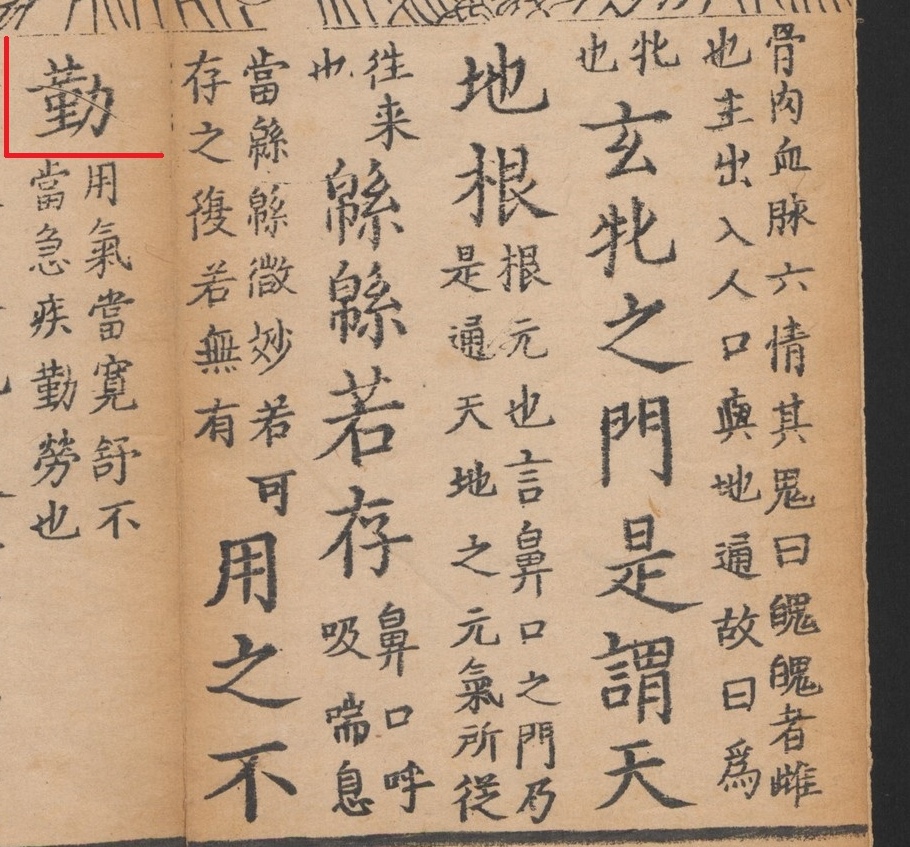 骨肉血脉六情其鬼曰魄魄者雌
也主出入人口與地通故曰為
牝
也
玄牝之門是謂天
地根
根元也言鼻口之門乃
是通天地之元氣所從
往来
也
緜緜若存
鼻口呼
吸喘息
當緜緜微妙若可
存之復若無有
用之不
勤
用氣當寬舒不
當急疾勤勞也